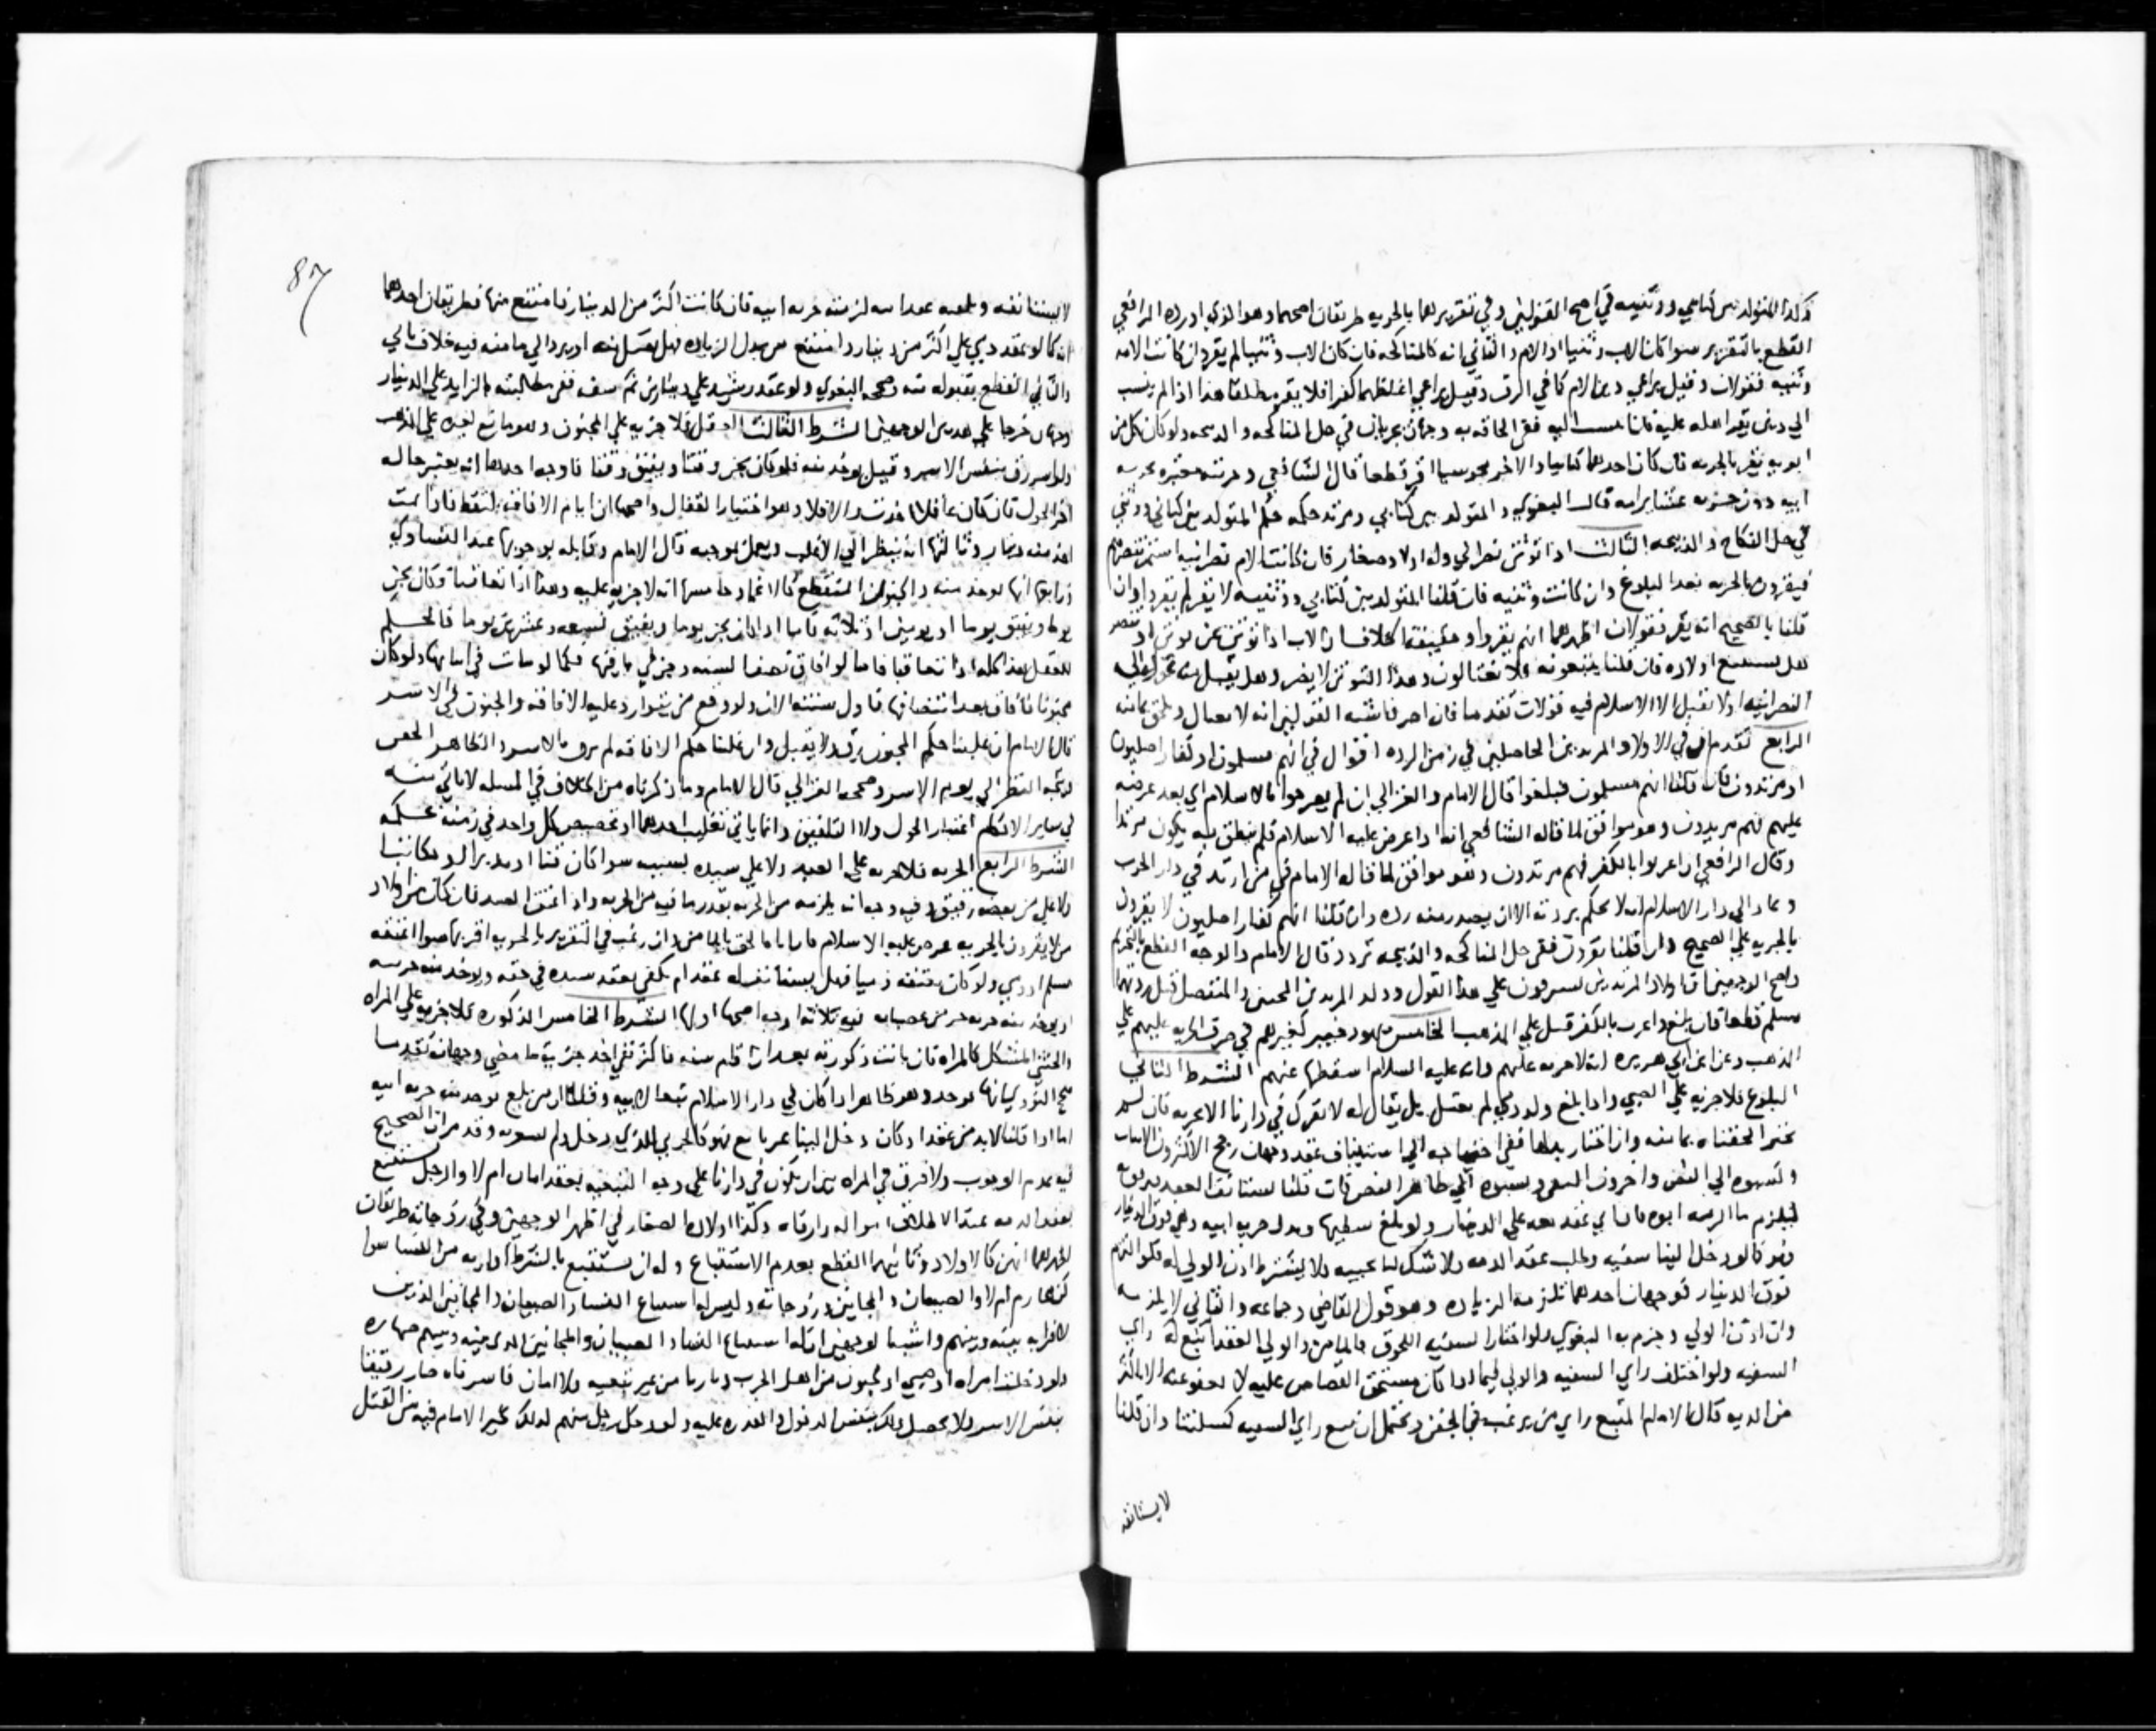 وكذا المتولد بين كتابي ووثنيه في اصح القولين وفي تقريرهما بالجزيه طريقان اصحهما وهو الذي اورده الرافعي
القطع بالتقرير سوا كان الاب وثنيا او الام والثاني انه كالمناكحه فان كان الاب وثنيا لم يقر وان كانت الام
وثنيه فقولان وقيل يراعي دين الام كما في الرق وقيل يراعي اغلظهما كفرا فلا يقر مطلقا هذا اذا لم ينتسب
الي دين يقر اهله عليه فان انتسب اليه ففي الحاقه به وجهان يجريان في حل المناكحه والذبيحه ولو كان كل من
ابويه يقر بالجزيه فان كان احدهما كتابيا والاخر مجوسيا اقر قطعا قال الشافعي وجزيته جزيه
ابيه دون جزيه امه قال البغوي والمتولد بين كتابي ومرتد حكمه حكم المتولد بين كتابي ووثني
في حل النكاح والذبيحه الثالث اذا توثن نصراني وله اولاد صغار فان كانت الام نصرانيه استمر تنصرهم
فيقرون بالجزيه بعد البلوغ وان كانت وثنيه فان قلنا المتولد بين كتابي ووثنيه لا يقر لم يقروا وان
قلنا بالصحيح انه يقر فقولان اظهرهما انهم يقروا
هل يستتبع اولاده فان قلنا يتبعونه فلا يغتالون وهذا التوثن لا يضر وهل يقبل منه
النصرانيه او لا يقبل الا الاسلام فيه قولان تقدما فان اصر فاشبه القولين انه لا يغتال ويلحق بمامنه
الرابع تقدم ان في الاولاد المرتدين الحاصلين في زمن الرده اقوال في انهم مسلمون او كفار اصليون
او مرتدون فان قلنا انهم مسلمون فبلغوا قال الامام والغزالي ان لم يعرجوا بالاسلام اي بعد عرضه
عليهم فهم مرتدون وهو موافق لما قاله الشافعي انه اذا عرض عليه الاسلام فلم ينطق به يكون مرتدا
وقال الرافعي ان اعربوا بالكفر فهم مرتدون وهو موافق لما قاله الامام في من ارتد في دار الحرب
وعاد الي دار الاسلام انه لا يحكم بردته الا ان يصدر منه رده وان قلنا انهم كفار اصليون لا يقرون
بالجزيه علي الصحيح وان قلنا يقرون ففي حل المناكحه والذبيحه تردد قال الامام والوجه القطع بالتحريم
واصح الوجهين ان اولاد المرتدين يسترقون علي هذا القول وولد المرتدين المجنن والمنفصل قبل ردتهما
مسلم قطعا فان بلغ واعرب بالكفر قتل علي المذهب الخامس يهود خيبر كغيرهم في ضرب الجزيه عليهم علي
المذهب وعن ابن ابي هريره انه لا جزيه عليهم وانه عليه السلام اسقطها عنهم الشرط الثاني
البلوغ فلا جزيه علي الصبي واذا بلغ ولد ذمي لم يغتل بل يقال له لا تترك في دارنا الا بجزيه فان لم
يختر الحقناه بمامنه وان اختار بذلها ففي احتياجه الي استيناف عقد وجهان رجح الاكثرون الاثبات
ونسبوه الي النص واخرون النفي ونسبوه الي ظاهر النص فان قلنا يستانف العقد
فيلزم ما التزمه ابوه فان ابي عقد معه علي الدينار ولو بلغ سفيها وبذل جزيه ابيه وهي فوق الدينار
فهو كما لو دخل الينا سفيه وطلب عقد الذمه ولا شك انا نجيبه ولا يشترط اذن الولي له فلو التزم
فوق الدينار فوجهان احدهما تلزمه الزياده وهو قول القاضي وجماعه والثاني لا يلزمه
وان اذن الولي وجزم به البغوي ولو اختار السفيه اللحوق بالمامن والولي العقد اتبع له راي
السفيه ولو اختلف راي السفيه والولي فيما اذا كان مستحق القصاص عليه لا يعفو عنه الا باكثر
من الديه قال الامام المتبع راي من يرغب في الحقن ويحتمل ان نتبع راي السفيه كمسلتنا وان قلنا
لا يستانفه
87
لا يستانفه ويلحقه عقد ابيه لزمته جزيه ابيه فان كانت اكثر من الدينار فامتنع منها فطريقان احدهما
انه كما لو عقد ذمي علي اكثر من دينار وامتنع من بذل الزياده فهل يقبل منه او يرد الي مامنه فيه خلاف ياتي
والثاني القطع بقبوله منه وصححه البغوي ولو عقد رشيد علي دينارين ثم سفه ففي مطالبته بالزايد علي الدينار
وجهان خرجا علي هذين الوجهين الشرط الثالث العقل فلا جزيه علي المجنون وهو ما تبع لغيره علي المذهب
ولو اسر رق بنفس الاسر وقيل يوخذ منه فلو كان يجن وقتا ويفيق وقتا فاوجه احدها انه يعتبر حاله
اخر الحول فان كان عاقلا اخذت والا فلا وهو اختيار القفال واصحها ان ايام الافاقه تلتقط فاذا تمت
اخذ منه دينار وثالثها انه ينظر الي الاغلب ويعمل بموجبه قال الامام وقابله يوجبها عند التساوي
ورابعها انها توخذ منه والجنون المتقطع كالاغما وخامسها انه لا جزيه عليه وهذا اذا تعاقبا وكان يجن
يوما ويفيق يوما او يومين او ثلاثه فاما اذا كان يجن يوما ويفيق تسعه وعشرين يوما فالحكم
للعقل هذا كله اذا تعاقبا فاما لو افاق نصف السنه وجن في باقيها فكما لو مات في اثنايها ولو كان
مجنونا فافاق بعد انتصافها فاول سنته الان ولو وقع من يتوارد عليه الافاقه والجنون في الاسر
قال الامام ان غلبنا حكم الجنون رق ولا يقبل وان غلبنا حكم الافاقه لم يرق بالاسر والظاهر الحقن
ويتجه النظر الي يوم الاسر وصححه الغزالي قال الامام وما ذكرناه من الخلاف في المسله لا ياتي منه
في ساير الاحكام اعتبار الحول ولا التلفيق وانما ياتي تغليب احدهما او تخصيص كل واحد في زمنه بحكمه
الشرط الرابع الحريه فلا جزيه علي العبد ولا علي سيده بسببه سوا كان قنا او مدبرا او مكاتبا
ولا علي من بعضه رقيق وفيه وجه انه يلزمه من الجزيه بقدر ما فيه من الحريه واذا اعتق العبد فان كان من اولاد
من لا يقرون بالجزيه عرض عليه الاسلام فان اباه الحق بالمامن وان رغب في التقرير بالجزيه اقر بها سوا اعتقه
مسلم او ذمي ولو كان معتقه ذميا فهل يستانف له عقد ام يكفي بعقد سيده في حقه ويوخذ منه جزيه
او يوخذ منه جزيه من عصباته فيه ثلاثه اوجه اصحها اولها الشرط الخامس الذكوره فلا جزيه علي المراه
والخنثي المشكل كالمراه فان بانت ذكورته بعد ان اقام سنه فاكثر ففي اخذ جزيه ما مضي وجهان تقدما
صحح النووي انها توخذ وهو ظاهر اذا كان في دار الاسلام تبعا لابيه وقلنا ان من بلغ توخذ منه جزيه ابيه
اما اذا قلنا لا بد من عقد او كان دخل الينا غير تابع فهو كالحربي الذي دخل ولم نشعر به وقد مر ان الصحيح
فيه عدم الوجوب ولا فرق في المراه بين ان تكون في دارنا علي وجه التبعيه بعقد امان ام لا والرجل يستتبع
بعقد الذمه عند الاطلاق امواله وارقاه وكذا اولاده الصغار في اظهر الوجهين وفي زوجاته طريقان
اظهرهما انهن كالاولاد وثانيهما القطع بعدم الاستتباع وله ان يستتبع بالشرط اقاربه من النسا سوا
كن محارم ام لا والصبيان والمجانين وزوجاته وليس له استتباع النسا والصبيان والمجانين الذين
لا قرابه بينه وبينهم واشبه الوجهين ان له استتباع النسا والصبيان والمجانين الذي بينه وبينهم مصاهره
ولو دخلت امراه او صبي او مجنون من اهل الحرب دارنا من غير تبعيه ولا امان فاسرناه صار رقيقا
بنفس الاسر ولا يحصل ذلك بنفس الدخول والقدره عليه ولو دخل رجل منهم لذلك تخير الامام فيه بين القتل